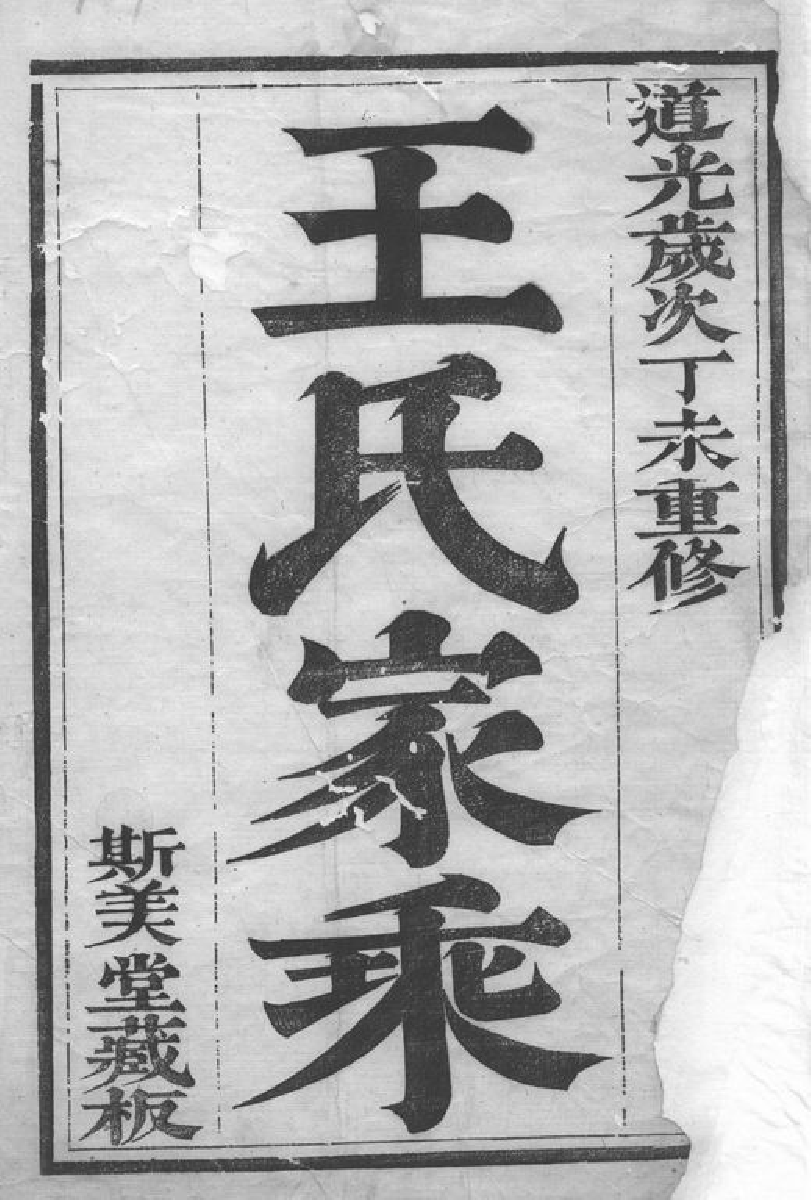 道光歲次丁未重修
王氏家乘
斯美堂藏板